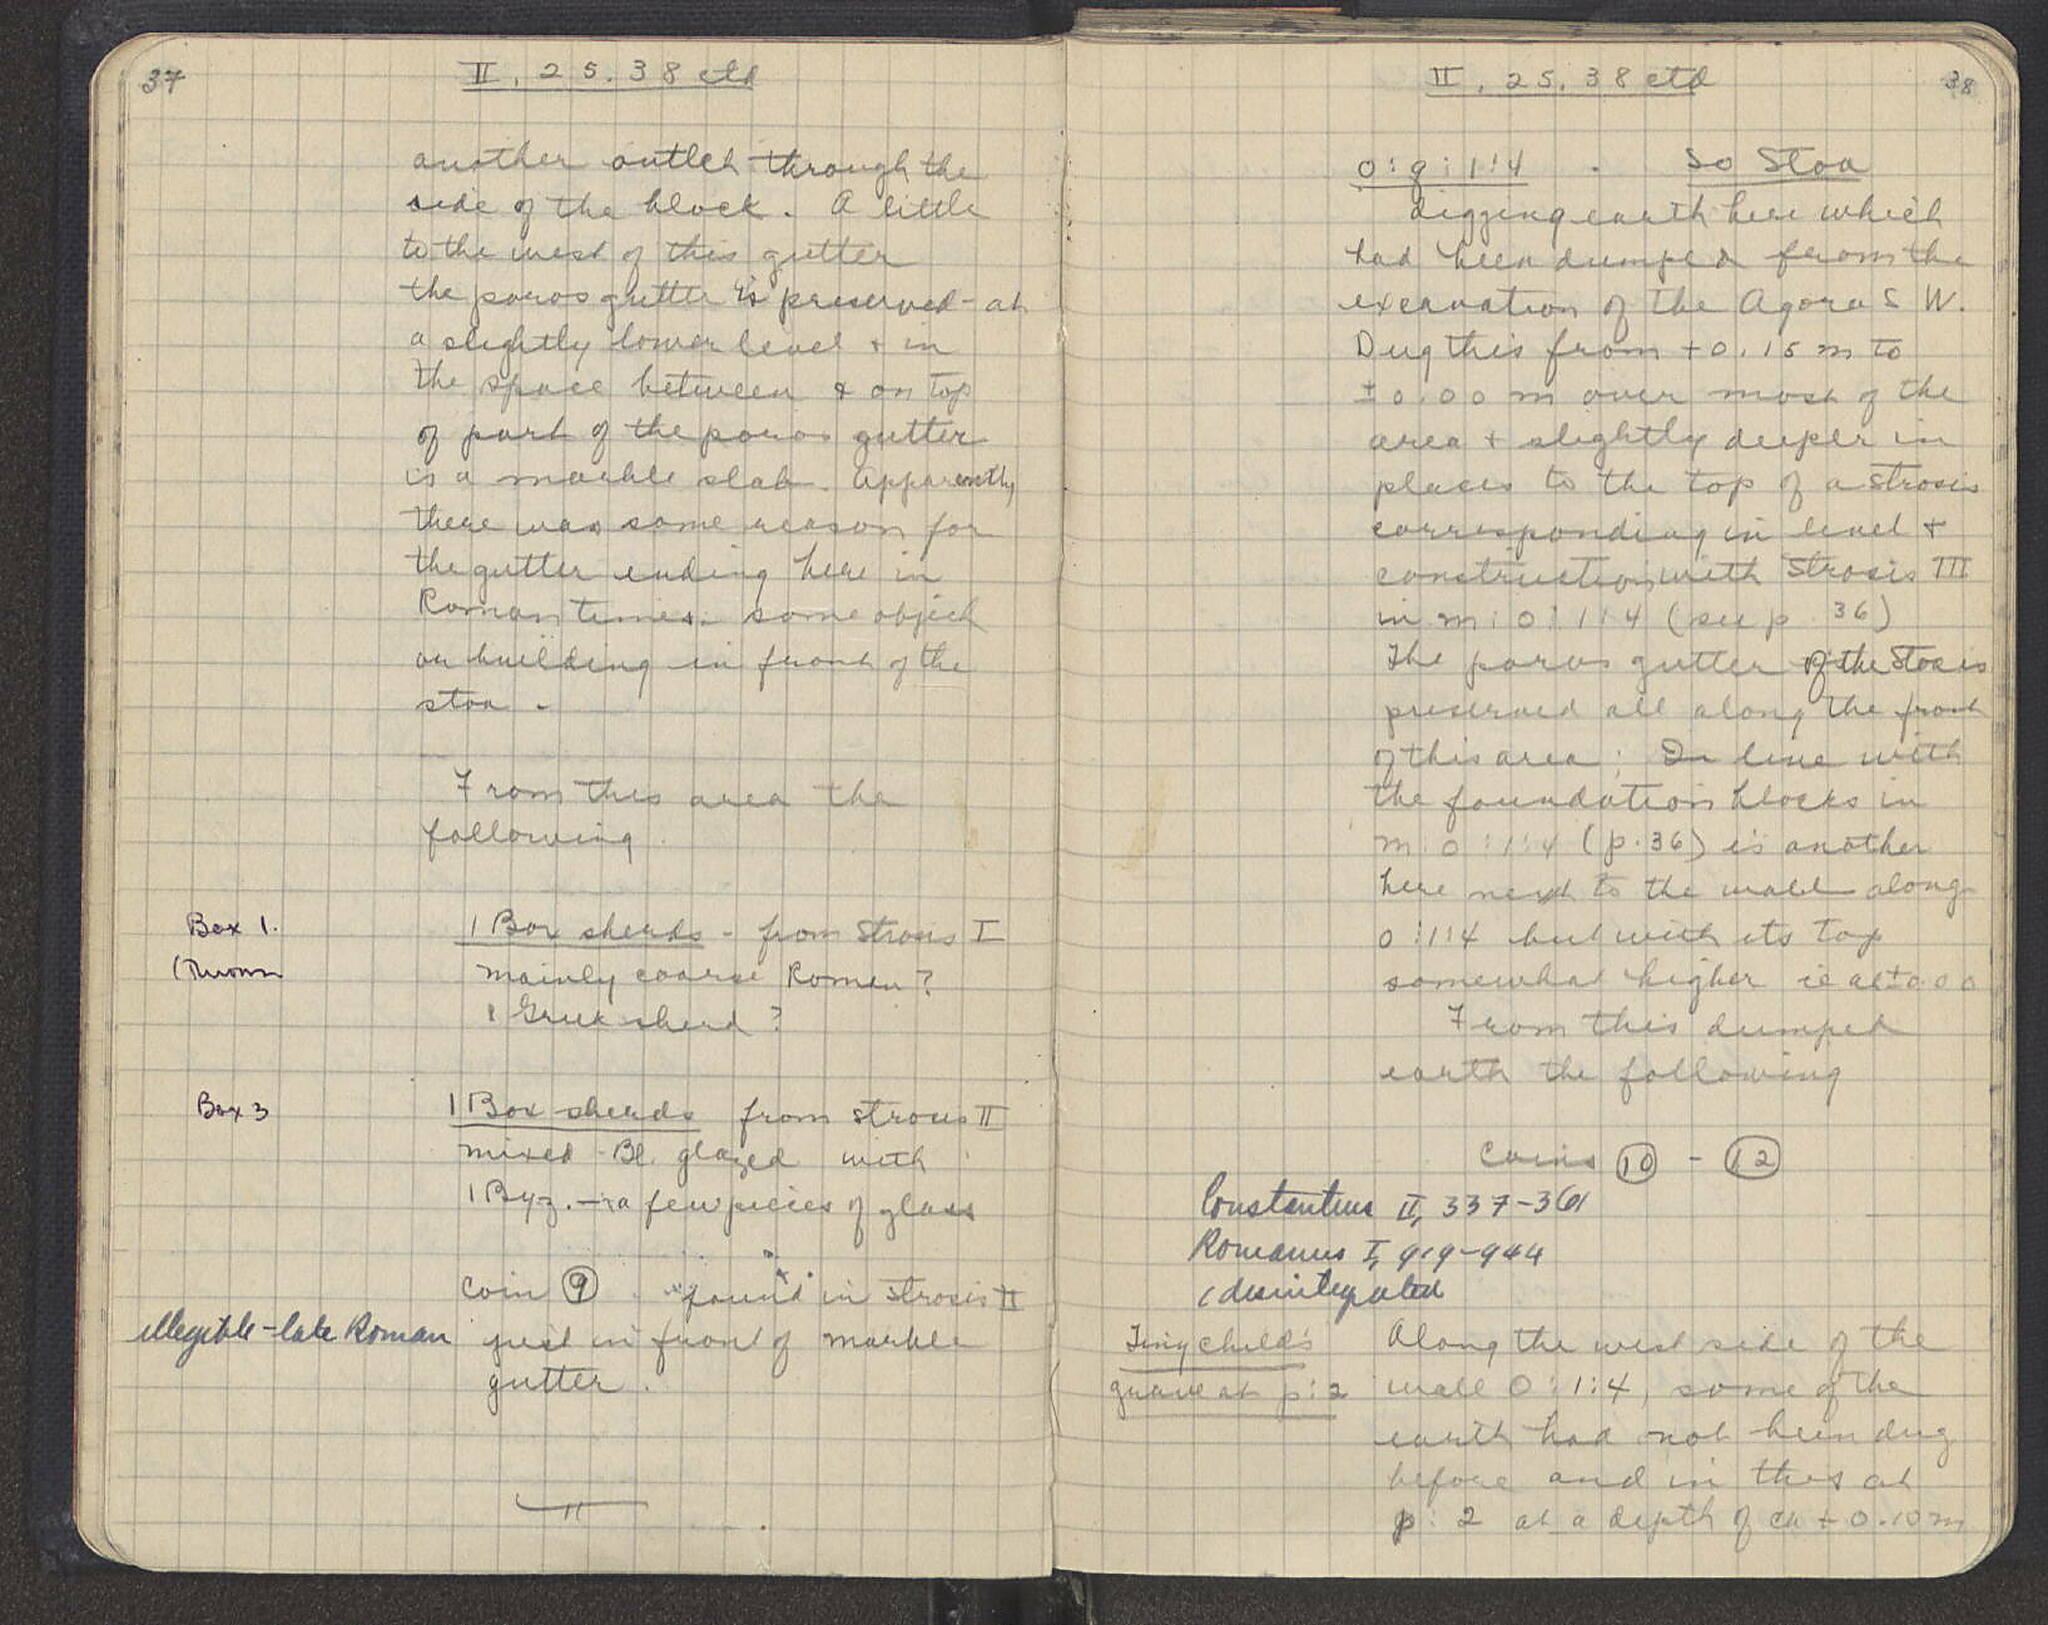 37
II, 25.38 ctd
another outlet through the
side of the block. A little
to the west of this gutter
the poros gutter is preserved - at
a slightly lower level + in
the space between & on top
of part of the poros gutter
is a marble slab. Apparently
there was some reason for
the gutter ending here in
Roman times. some object
or building in front of the
stoa -
From this area the
following.
Box 1.
(Thrown
1 Box sherds - from Strosis I
mainly coarse Roman?
1 Greek sherd?
Box 3
1 Box sherds from strosis II
mixed - Bl. glazed with
1 Byz. - a few pieces of glass
Coin 9 found in Strosis II
illegible - late Roman
just in front of marble
gutter.
38
II, 25.38 ctd
O:q:1:4 - So Stoa
digging earth here which
had been dumped from the
excavation of the Agora S W.
Dug this from +0.15 m to
±0.00 m over most of the
area + slightly deeper in
places to the top of a strosis
corresponding in level +
construction with Strosis III
in m:o:1:4 (see p 36)
The poros gutter of the Stoa is
preserved all along the front
of this area; In line with
the foundation blocks in
m:o:1:4 (p.36) is another
here next to the wall along
o:1:4 but with its top
somewhat higher ie at ±0.00
From this dumped
earth the following
Coins 10 - 12
Constantius II, 337-361
Romanus I, 919-944
1 disintegrated
Tiny child's
grave at p:2
Along the west side of the
wall O:1:4, some of the
earth had not been dug
before and in this at
p:2 at a depth of ca +0.10 m